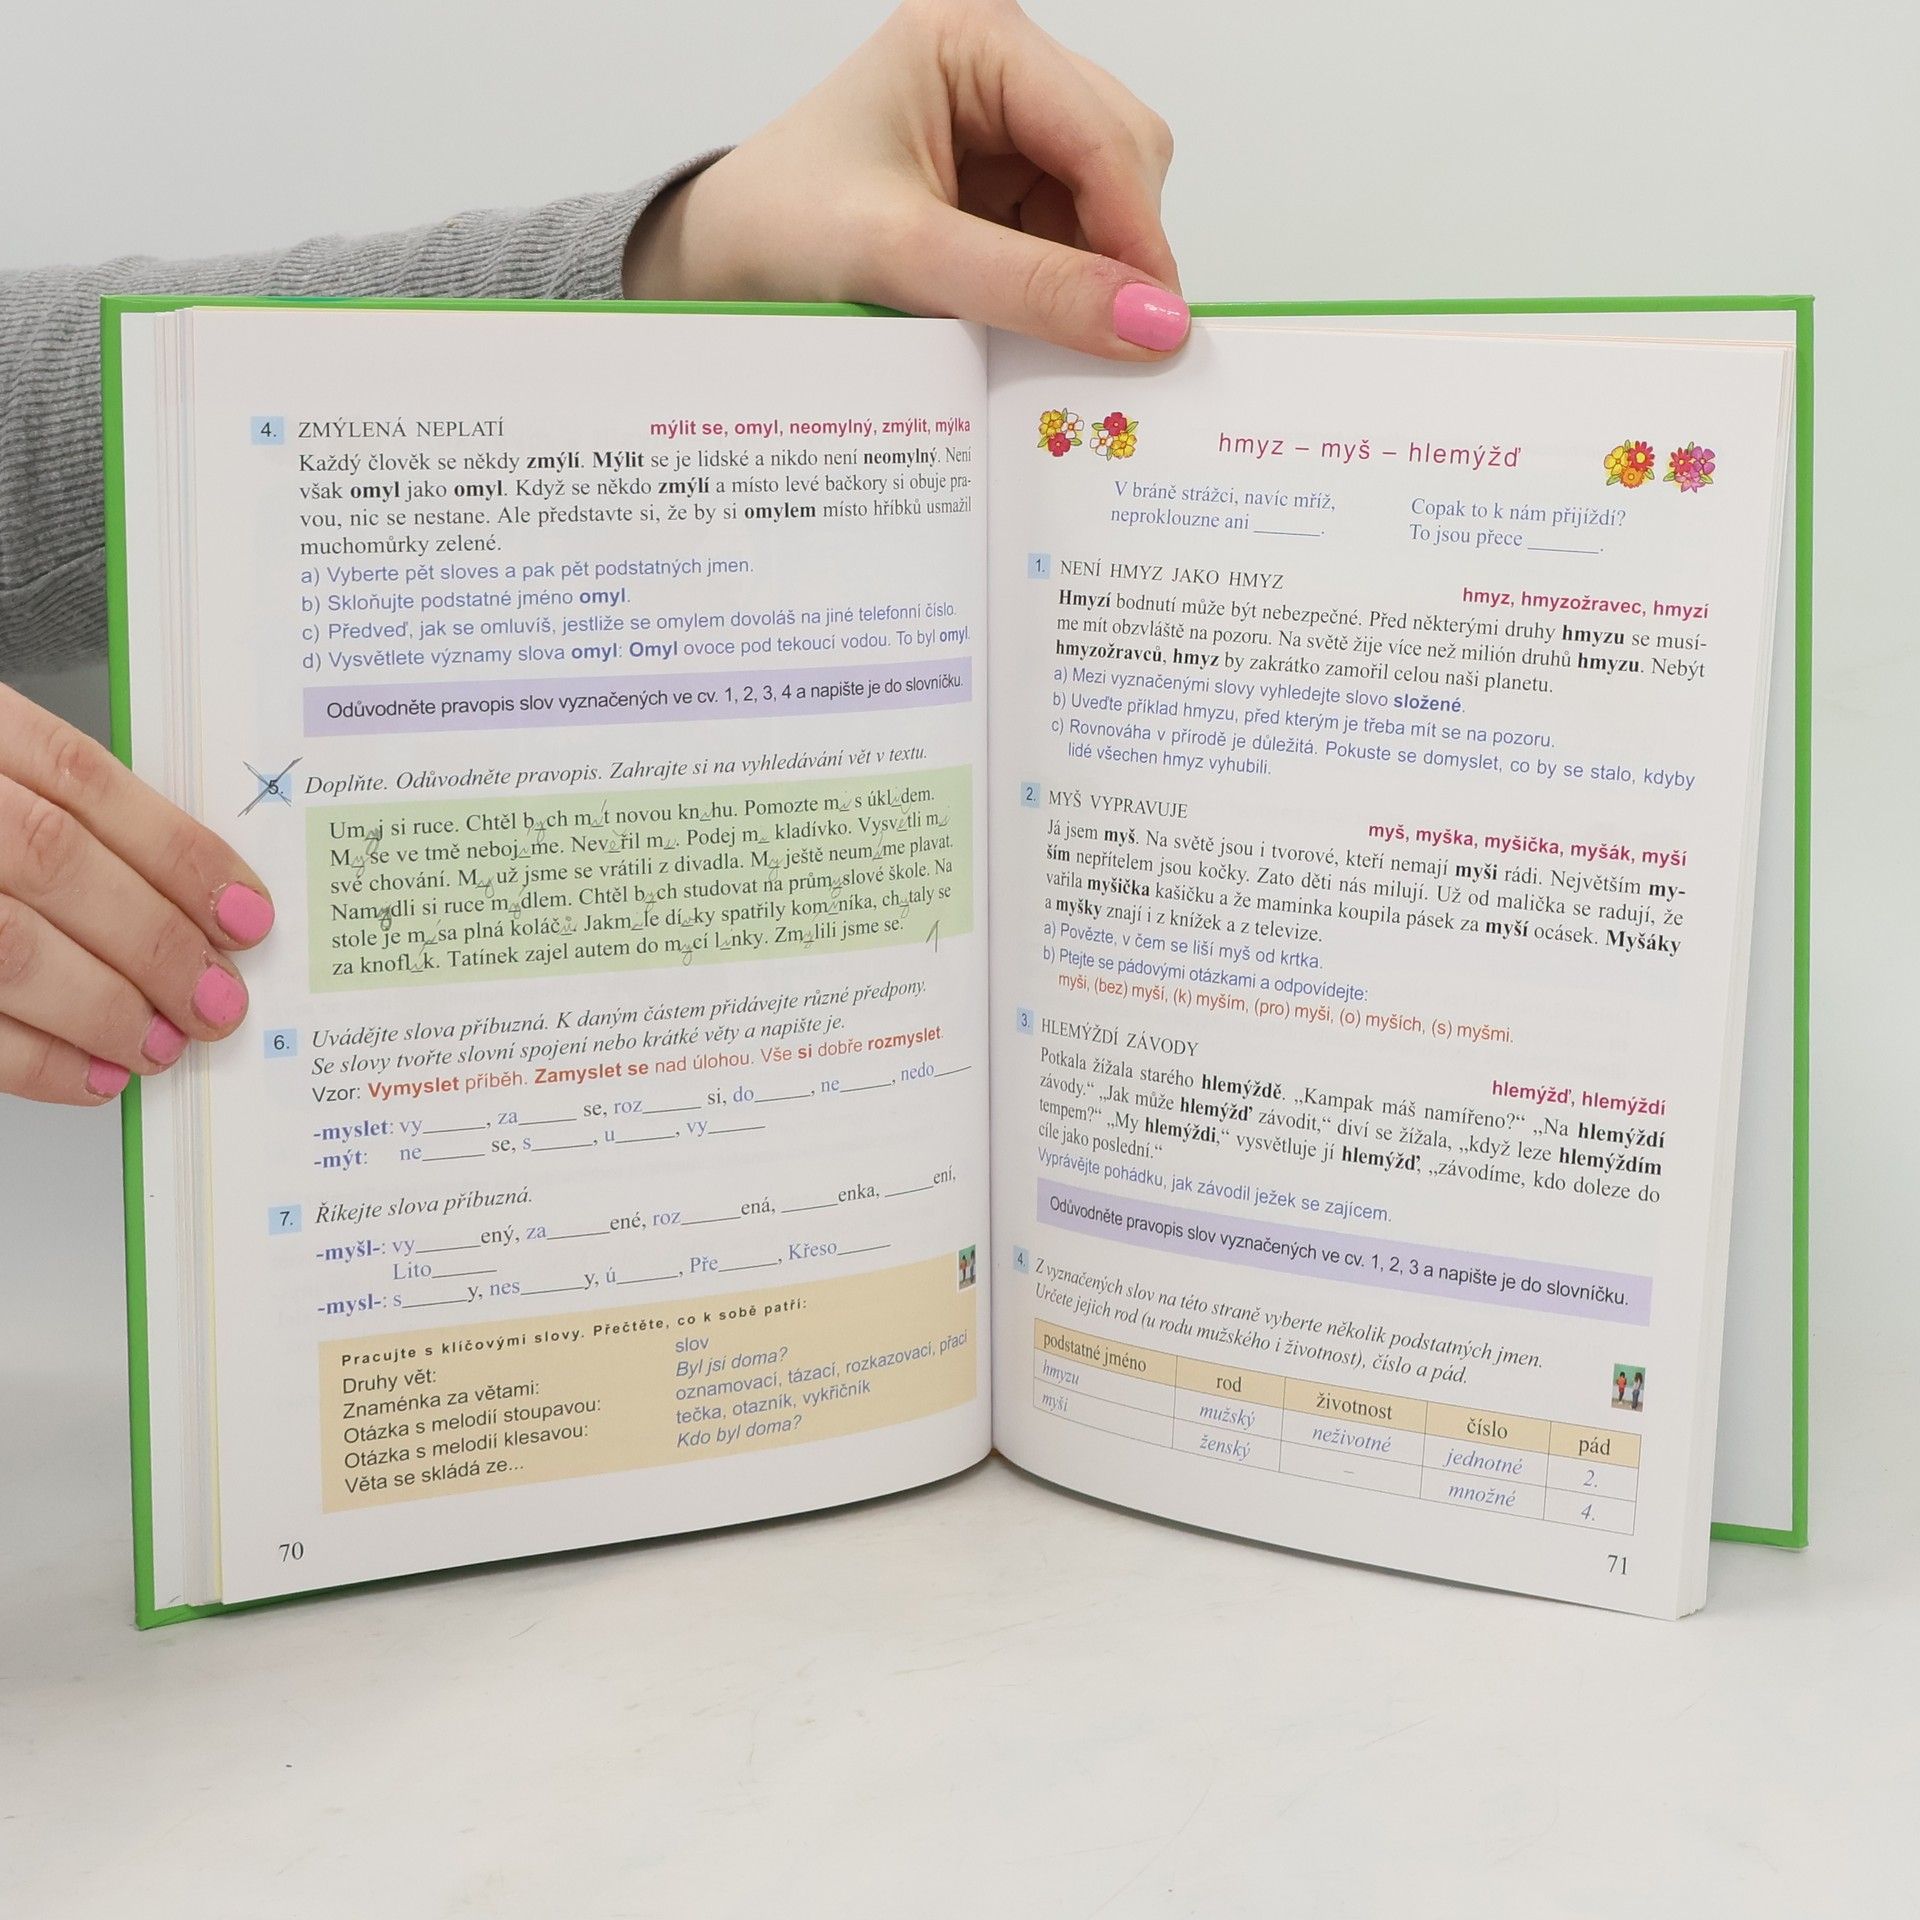 4. ZMÝLENÁ NEPLATÍ
mýlit se, omyl, neomylný, zmýlit, mýlka
Každý člověk se někdy zmýlí. Mýlit se je lidské a nikdo není neomylný. Není
však omyl jako omyl. Když se někdo zmýlí a místo levé bačkory si obuje pra-
vou, nic se nestane. Ale představte si, že by si omylem místo hříbků usmažil
muchomůrky zelené.
a) Vyberte pět sloves a pak pět podstatných jmen.
b) Skloňujte podstatné jméno omyl.
c) Předveď, jak se omluvíš, jestliže se omylem dovoláš na jiné telefonní číslo.
d) Vysvětlete významy slova omyl: Omyl ovoce pod tekoucí vodou. To byl omyl.
Odůvodněte pravopis slov vyznačených ve cv. 1, 2, 3, 4 a napište je do slovníčku.
5. Doplňte. Odůvodněte pravopis. Zahrajte si na vyhledávání vět v textu.
Um_yj si ruce. Chtěl b_ych m_ít novou kn_ihu. Pomozte m_i s úkl_idem.
M_y se ve tmě neboj_íme. Nev_ěřil m_i. Podej m_i kladívko. Vysv_ětli m_i
své chování. M_y už jsme se vrátili z divadla. M_y ještě neum_íme plavat.
Nam_ydli si ruce m_ýdlem. Chtěl b_ych studovat na prům_yslové škole. Na
stole je m_ísa plná koláč_ů. Jakm_ile dí_vky spatřily kom_iníka, ch_ytaly se
za knofl_ík. Tatínek zajel autem do m_ycí l_inky. Zm_ýlili jsme se.
1
6. Uvádějte slova příbuzná. K daným částem přidávejte různé předpony.
Se slovy tvořte slovní spojení nebo krátké věty a napište je.
Vzor: Vymyslet příběh. Zamyslet se nad úlohou. Vše si dobře rozmyslet.
-myslet: vy_____, za_____ se, roz_____ si, do_____, ne_____, nedo____
-mýt: ne_____ se, s_____, u_____, vy_____
7. Říkejte slova příbuzná.
-myšl-: vy_____ený, za_____ené, roz_____ená, _____enka, _____ení,
Lito_____
-mysl-: s_____y, nes_____y, ú_____, Pře_____, Křeso_____
Pracujte s klíčovými slovy. Přečtěte, co k sobě patří:
Druhy vět: slov
Znaménka za větami: Byl jsi doma?
Otázka s melodií stoupavou: oznamovací, tázací, rozkazovací, přací
Otázka s melodií klesavou: tečka, otazník, vykřičník
Věta se skládá ze... Kdo byl doma?
70
hmyz – myš – hlemýžď
V bráně strážci, navíc mříž,
neproklouzne ani _______.
Copak to k nám přijíždí?
To jsou přece _______.
1. NENÍ HMYZ JAKO HMYZ
hmyz, hmyzožravec, hmyzí
Hmyzí bodnutí může být nebezpečné. Před některými druhy hmyzu se musí-
me mít obzvláště na pozoru. Na světě žije více než milión druhů hmyzu. Nebýt
hmyzožravců, hmyz by zakrátko zamořil celou naši planetu.
a) Mezi vyznačenými slovy vyhledejte slovo složené.
b) Uveďte příklad hmyzu, před kterým je třeba mít se na pozoru.
c) Rovnováha v přírodě je důležitá. Pokuste se domyslet, co by se stalo, kdyby
lidé všechen hmyz vyhubili.
2. MYŠ VYPRAVUJE
myš, myška, myšička, myšák, myší
Já jsem myš. Na světě jsou i tvorové, kteří nemají myši rádi. Největším my-
ším nepřítelem jsou kočky. Zato děti nás milují. Už od malička se radují, že
vařila myšička kašičku a že maminka koupila pásek za myší ocásek. Myšáky
a myšky znají i z knížek a z televize.
a) Povězte, v čem se liší myš od krtka.
b) Ptejte se pádovými otázkami a odpovídejte:
myši, (bez) myší, (k) myším, (pro) myši, (o) myších, (s) myšmi.
3. HLEMÝŽDÍ ZÁVODY
hlemýžď, hlemýždí
Potkala žížala starého hlemýždě. „Kampak máš namířeno?“ „Na hlemýždí
závody.“ „Jak může hlemýžď závodit,“ diví se žížala, „když leze hlemýždím
tempem?“ „My hlemýždi,“ vysvětluje jí hlemýžď, „závodíme, kdo doleze do
cíle jako poslední.“
Vyprávějte pohádku, jak závodil ježek se zajícem.
Odůvodněte pravopis slov vyznačených ve cv. 1, 2, 3 a napište je do slovníčku.
4. Z vyznačených slov na této straně vyberte několik podstatných jmen.
Určete jejich rod (u rodu mužského i životnost), číslo a pád.
podstatné jméno rod životnost číslo pád
hmyzu mužský neživotné jednotné 2.
myši ženský – množné 4.
71